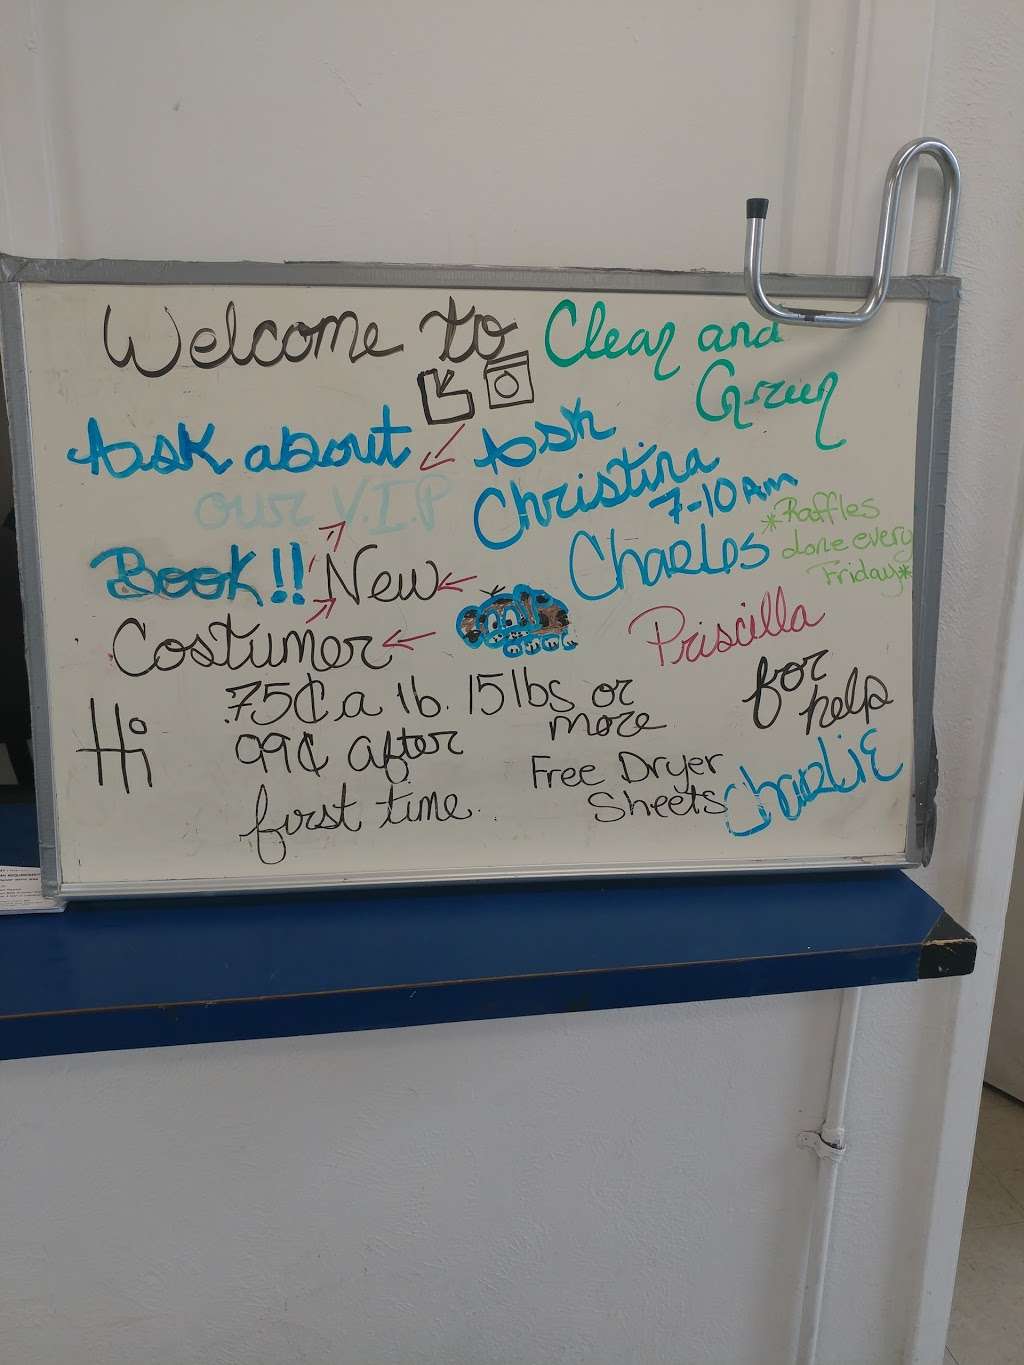 Welcome to Clean and
Green
Ask about
our V.I.P
Book!! New
Costumer
Ask
Christina
7-10 AM
Charles
*Raffles
done every
Friday*
Priscilla
for
help
Hi
.75¢ a lb. 15 lbs or
more
99¢ after
first time.
Free Dryer
Sheets
Charlie